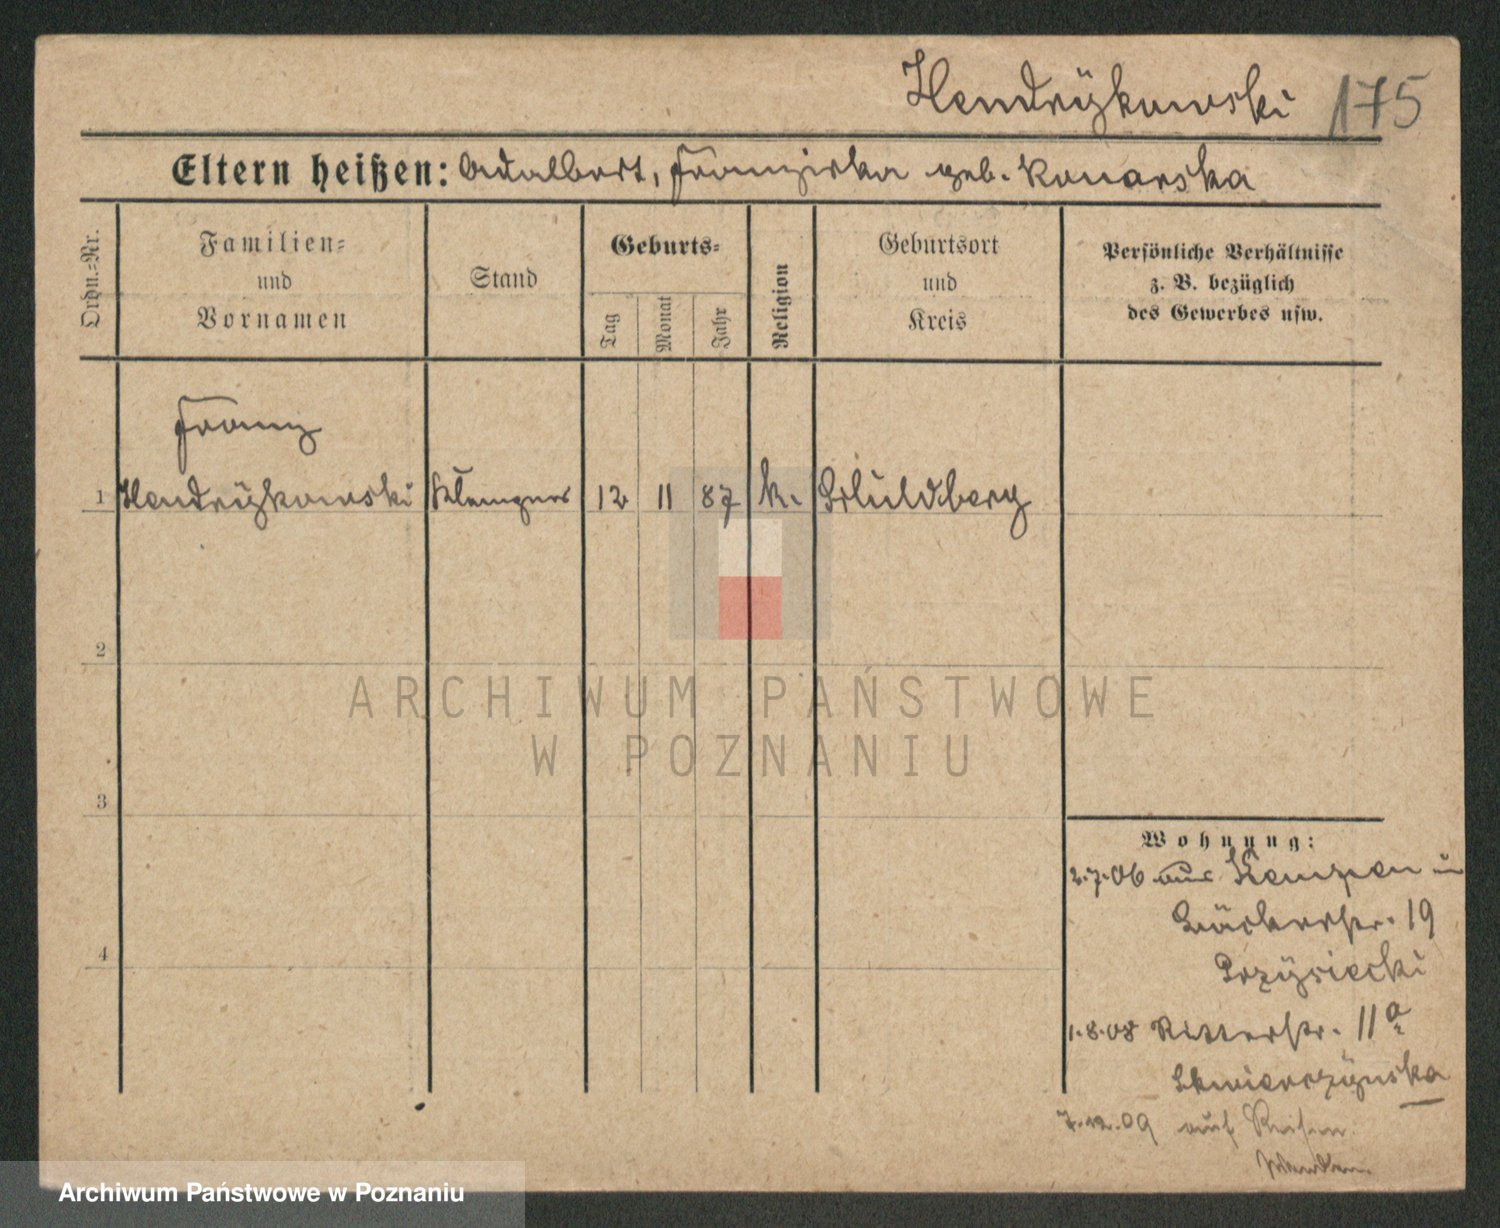 Hendrÿkowski 175
Eltern heißen: Adalbert, Franziska geb. Konarska
Ordn.-Nr.
Familien-
und
Vornamen
Stand
Geburts-
Tag
Monat
Jahr
Religion
Geburtsort
und
Kreis
Persönliche Verhältnisse
z. B. bezüglich
des Gewerbes usw.
Franz
1 Hendrÿkowski Klempner 12 11 87 k. Schildberg
2
ARCHIWUM PAŃSTWOWE
W POZNANIU
3
Wohnung:
2.7.06 aus Kempen in
Bäckerstr. 19
4
1.8.08 Ritterstr. 11a
Skwierczÿnska
7.12.09 auf Reisen
Archiwum Państwowe w Poznaniu